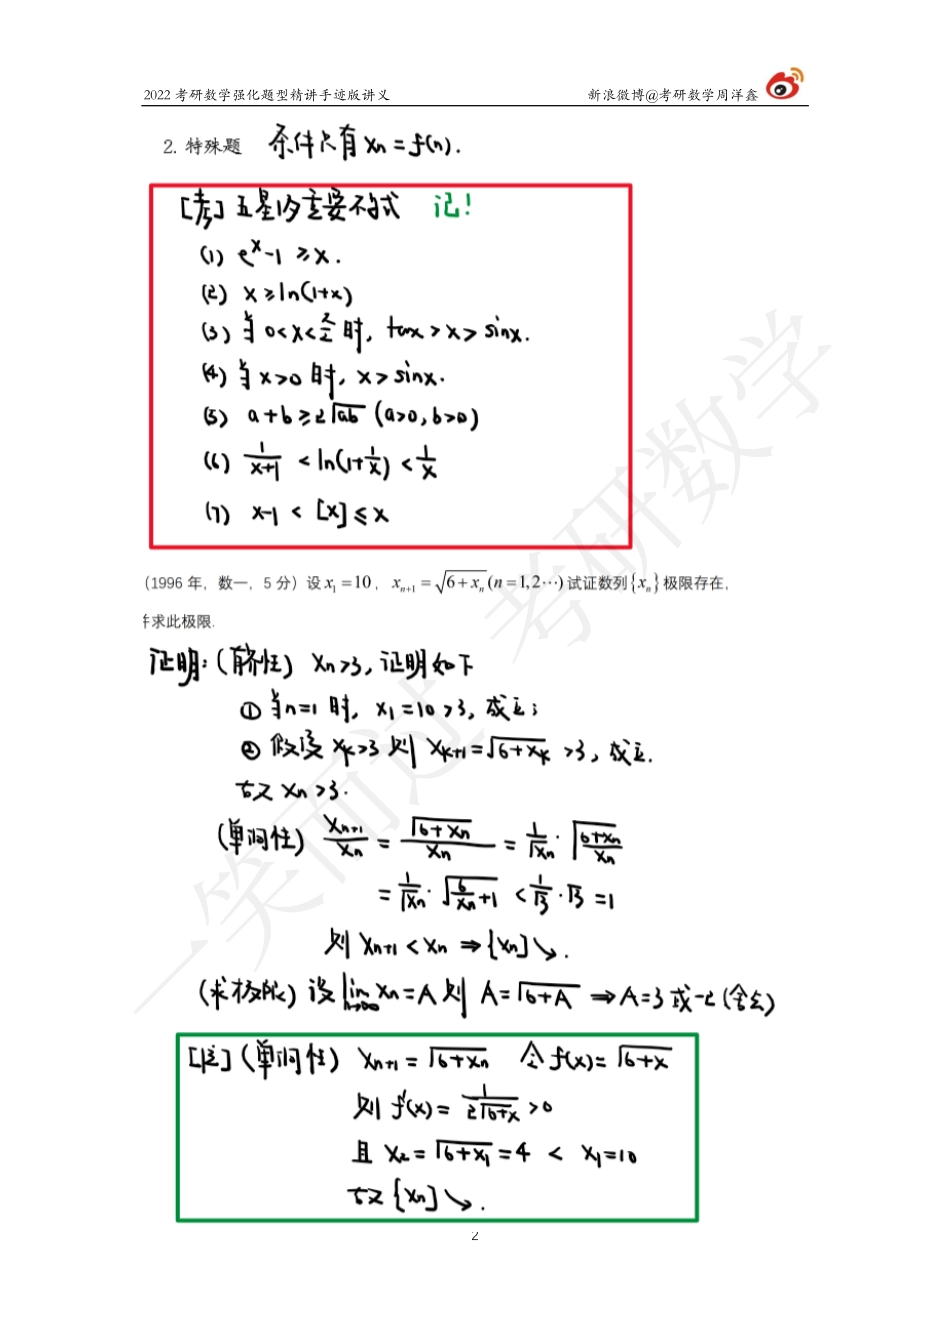 2022 考研数学强化题型精讲手迹版讲义 新浪微博@考研数学周洋鑫
2. 特殊题 条件只有 xn = f(n).
[考] 五星的重要不等式 记!
(1) e^x-1 ≥ x.
(2) x ≥ ln(1+x)
(3) 当 0<x<π/2 时, tanx > x > sinx.
(4) 当 x>0 时, x > sinx.
(5) a+b ≥ 2√ab (a>0, b>0)
(6) 1/(x+1) < ln(1+1/x) < 1/x
(7) x-1 < [x] ≤ x
(1996 年, 数一, 5 分) 设 x₁ = 10, xₙ₊₁ = √(6+xₙ) (n = 1,2⋯) 试证数列{xₙ}极限存在,
并求此极限.
证明: (有界性) xn>3, 证明如下
① 当n=1 时, x1=10>3, 成立;
② 假设 xk>3 则 xk+1=√(6+xk) >3, 成立.
故 xn >3.
(单调性) xn+1/xn = √(6+xn)/xn = 1/√xn · √((6+xn)/xn)
= 1/√xn · √(6/xn+1) < 1/√3 · √3 = 1
则 xn+1 < xn ⇒ {xn}↘.
(求极限) 设 lim n→∞ xn = A 则 A = √(6+A) ⇒ A=3 或 -2 (舍去)
[注] (单调性) xn+1 = √(6+xn) 令 f(x) = √(6+x)
则 f'(x) = 1/(2√(6+x)) >0
且 x2 = √(6+x1) = 4 < x1=10
故 {xn}↘.
2
一笑而过 考研数学